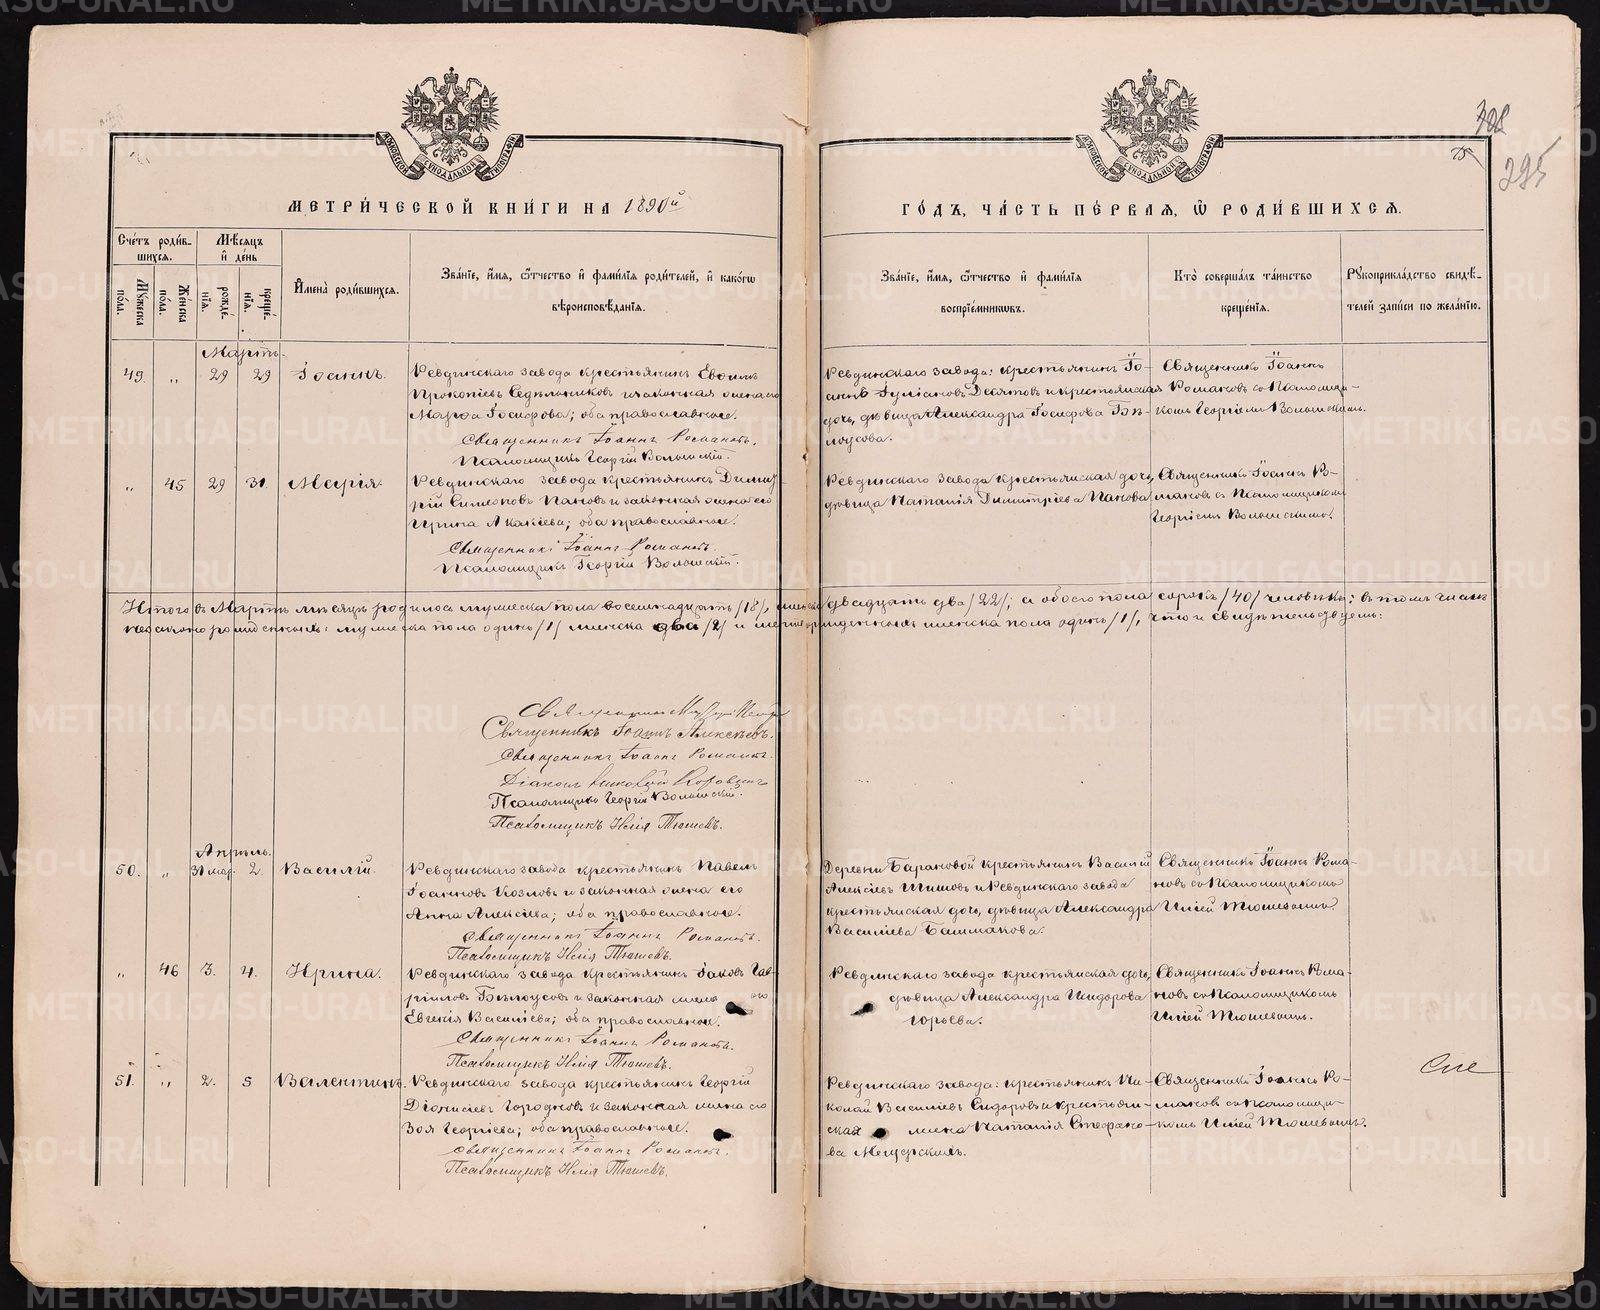 МЕТРИ́ЧЕСКОЙ КНИ́ГИ НА 1890й
ГО́ДЪ, ЧА́СТЬ ПЕ́РВАЯ, Ѡ҆ РОДИ́ВШИХСЯ.
295
Сче́тъ роди́в-
шихся.
Мѣ́сяцъ
и҆ де́нь
Мꙋ́жеска
по́ла.
Же́нска
по́ла.
рожде́-
нїя.
креще́-
нїя.
И҆мена̀ роди́вшихся.
Зва́нїе, и҆́мя, ѻ҆́тчество и҆ фами́лїя роди́телей, и҆ како́гѡ
вѣроисповѣ́данїя.
Зва́нїе, и҆́мя, ѻ҆́тчество и҆ фами́лїя
воспрїе́мникѡвъ.
Кто̀ соверша́лъ та́инство
креще́нїя.
Рꙋкоприкла́дство свидѣ́-
телей за́писи по жела́нїю.
Мартъ.
49. „ 29 29 Іоаннъ.
Ревдинскаго завода крестьянинъ Евѳимъ
Прокопіевъ Седельниковъ и законная жена его
Марѳа Іосифова; оба православные.
Священникъ Іоаннъ Романовъ.
Псаломщикъ Георгій Волынскій.
Ревдинскаго завода: крестьянинъ Іо-
аннъ Іуліановъ Десятовъ и крестьянская
дочь, дѣвица Александра Іосифова Бѣ-
лоусова.
Священникъ Іоаннъ
Романовъ съ Псаломщи-
комъ Георгіемъ Волынскимъ.
„ 45 29 31. Марія.
Ревдинскаго завода крестьянинъ Димит-
рій Симеоновъ Пановъ и законная жена его
Ирина Акакіева; оба православные.
Священникъ Іоаннъ Романовъ.
Псаломщикъ Георгій Волынскій.
Ревдинскаго завода крестьянская дочь,
дѣвица Наталія Димитріева Панова
Священникъ Іоаннъ Ро-
мановъ съ Псаломщикомъ
Георгіемъ Волынскимъ.
Итого въ Мартѣ мѣсяцѣ родилось мужеска пола восемнадцать /18/, женска двадцать два /22/; а обоего пола сорокъ /40/ человѣкъ; въ томъ числѣ
незаконнорожденныхъ: мужеска пола одинъ /1/ женска два /2/ и мертворожденныхъ женска пола одинъ /1/, что и свидѣтельствуемъ:
Священникъ
Священникъ Іоаннъ Алексѣевъ.
Священникъ Іоаннъ Романовъ.
Діаконъ Николай
Псаломщикъ Георгій Волынскій.
Псаломщикъ Илія Тюшевъ.
Апрѣль.
50. „ 31 мар. 2. Василій.
Ревдинскаго завода крестьянинъ Павелъ
Іоанновъ Козловъ и законная жена его
Анна Алексіева; оба православные.
Священникъ Іоаннъ Романовъ.
Псаломщикъ Илія Тюшевъ.
Деревни Барановой крестьянинъ Василій
Алексіевъ Шишовъ и Ревдинскаго завода
крестьянская дочь, дѣвица Александра
Василіева Башмакова.
Священникъ Іоаннъ Рома-
новъ съ Псаломщикомъ
Иліей Тюшевымъ.
„ 46 3. 4. Ирина.
Ревдинскаго завода крестьянинъ Іаковъ Гав-
ріиловъ Бѣлоусовъ и законная жена его
Евгенія Василіева; оба православные.
Священникъ Іоаннъ Романовъ.
Псаломщикъ Илія Тюшевъ.
Ревдинскаго завода крестьянская дочь,
дѣвица Александра Исидорова
Священникъ Іоаннъ Рома-
новъ съ Псаломщикомъ
Иліей Тюшевымъ.
51. „ 2. 5 Валентинъ.
Ревдинскаго завода крестьянинъ Георгій
Діонисіевъ Городновъ и законная жена его
Зоя Георгіева; оба православные.
Священникъ Іоаннъ Романовъ.
Псаломщикъ Илія Тюшевъ.
Ревдинскаго завода: крестьянинъ Ни-
колай Василіевъ Сидоровъ и крестьян-
ская жена Наталія Стефано-
ва Мещерскихъ.
Священникъ Іоаннъ Ро-
мановъ съ Псаломщи-
комъ Иліей Тюшевымъ.